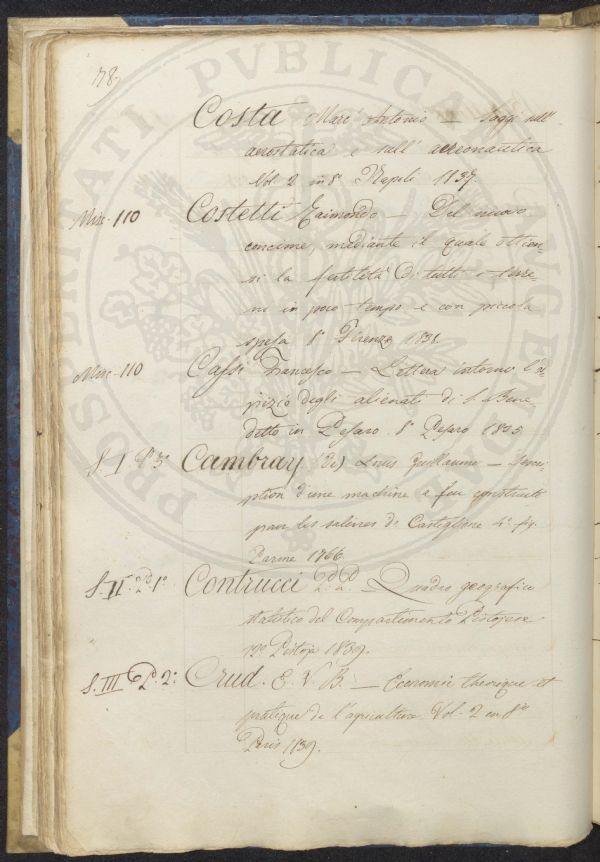 78.
Costa Marc' Antonio — Saggi sull'
aerostatica e sull' aereonautica
Vol. 2 in 8° Napoli 1837
Misc. 110 Costetti Raimondo — Del nuovo
concime, mediante il quale otten-
si la fertilità di tutti
in poco tempo e con piccola
spesa 8° Firenze 1831.
Misc. 110 Cassi Francesco — Lettera intorno l'os-
pizio degli alienati di S. Bene
detto in Pesaro. 8° Pesaro 1835
S. I P. 3° Cambray (de) Louis Guillaume — Descri-
ption d'une machine a feu construite
pour les salines de Castiglione 4° fig.
Parme 1766.
S. II. P. 1° Contrucci — Quadro geografico
statistico del Compartimento Pistojese
12° Pistoja 1839.
S. III P. 2° Crud. E. V. B. — Economie theorique et
pratique de l'agriculture Vol. 2 en 8°
Paris 1839.
PROSPERITATI PVBLICAE AVGENDAE